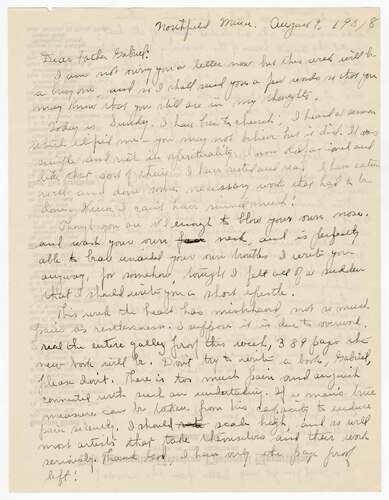 Northfield Minn. August 9, 1931/8
Dear Father Gabriel:
I am not owing you a letter now but this week will be
a busy one, and so I shall send you a few words so that you
may know that you still are in my thoughts.
Today is Sunday. I have been to church. I heard a sermon
which helped me — you may not believe but it did. It was
simple and rich in spirituality. I am old and
like that sort of thing. I have rested and read. I have eaten
and done some necessary work that had to be
done. Hence I can't have sinned much!
Though you are old enough to blow your own nose
and wash your own neck, and is perfectly
able to bear unaided your own troubles I write you
anyway, for somehow, tonight I felt all of a sudden
that I should write you a short epistle.
This week the heart has misbehaved, not so much
pain as restlessness. I suppose it is due to overwork.
read the entire galley proof this week, 389 pages the
new book will be. Don't try to write a book, Gabriel,
please don't. There is too much pain and anguish
connected with such an undertaking. If a man's true
measure can be taken from his capacity to endure
pain silently, I should scale high, and so will
most artists that take themselves and their work
seriously. Thank God, I have only the page proof
left!